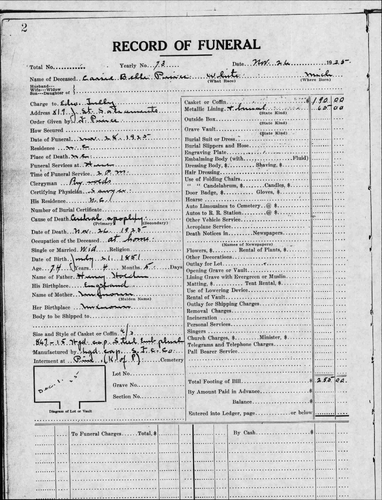 2
RECORD OF FUNERAL
Total No. Yearly No. 72 Date Nov. 26 1925
Name of Deceased Carrie Belle Prince White Mich
(What Race) (Where Born)
Husband—
Wife—Widow
Son—Daughter of
Charge to
Address 819 J St. Sacramento
Order Given by Prince
How Secured
Date of Funeral Nov 28 1925
Residence
Place of Death
Funeral Services at Home
Time of Service 2 P.M.
Clergyman
Certifying Physician Sawyer
His Residence
Number of Burial Certificate
Cause of Death Cerebral apoplexy
(Primary) (Secondary)
Date of Death Nov. 26 1925
Occupation of the Deceased at home
Single or Married Wid Religion
Date of Birth July 21, 1851
Age 74 Years 4 Months 5 Days
Name of Father Henry
His Birthplace England
Name of Mother Unknown
(Maiden Name)
Her Birthplace Unknown
Body to be Shipped to
Size and Style of Casket or Coffin 6/3
Manufactured by
Interment at Cemetery
Lot No.
Grave No.
Section No.
Diagram of Lot or Vault
Casket or Coffin $ 190 00
Metallic Lining 65 00
(State Kind)
Outside Box
(State Kind)
Grave Vault
(State Kind)
Burial Suit or Dress
Burial Slippers and Hose
Engraving Plate
Embalming Body (with Fluid)
Dressing Body, $ Shaving, $
Hair Dressing
Use of Folding Chairs
" " Candelabrum, $ Candles, $
Door Badge, $ Gloves, $
Hearse
Auto Limousines to Cemetery @ $
Autos to R. R. Station @ $
Other Vehicle Service
Aeroplane Service
Death Notices in Newspapers
(Names of Newspapers)
Flowers, $ Rental of Plants, $
Other Decorations
Outlay for Lot
Opening Grave or Vault
Lining Grave with Evergreen or Muslin
Matting, $ Tent Rental, $
Use of Lowering Device
Rental of Vault
Outlay for Shipping Charges
Removal Charges
Incineration
Personal Services
Singers
Church Charges, $ Minister, $
Telegrams and Telephone Charges
Pall Bearer Service
Total Footing of Bill $ 255 00
By Amount Paid in Advance
Balance
Entered into Ledger, page or below
To Funeral Charges Total $
By Cash $